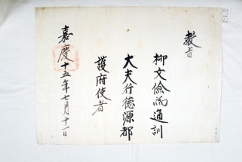 教旨
柳文儉爲通訓
大夫行德源郡
護府使者
嘉慶十五年七月十一日